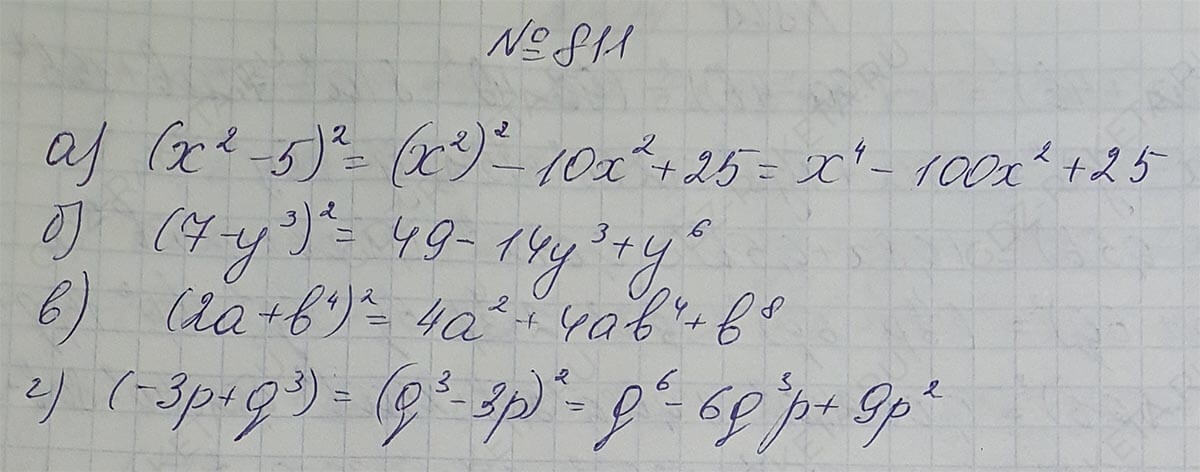 №811
а) (x² - 5)² = (x²)² - 10x² + 25 = x⁴ - 100x² + 25
б) (7 - y³)² = 49 - 14y³ + y⁶
в) (2a + b⁴)² = 4a² + 4ab⁴ + b⁸
г) (-3p + q³) = (q³ - 3p)² = q⁶ - 6q³p + 9p²